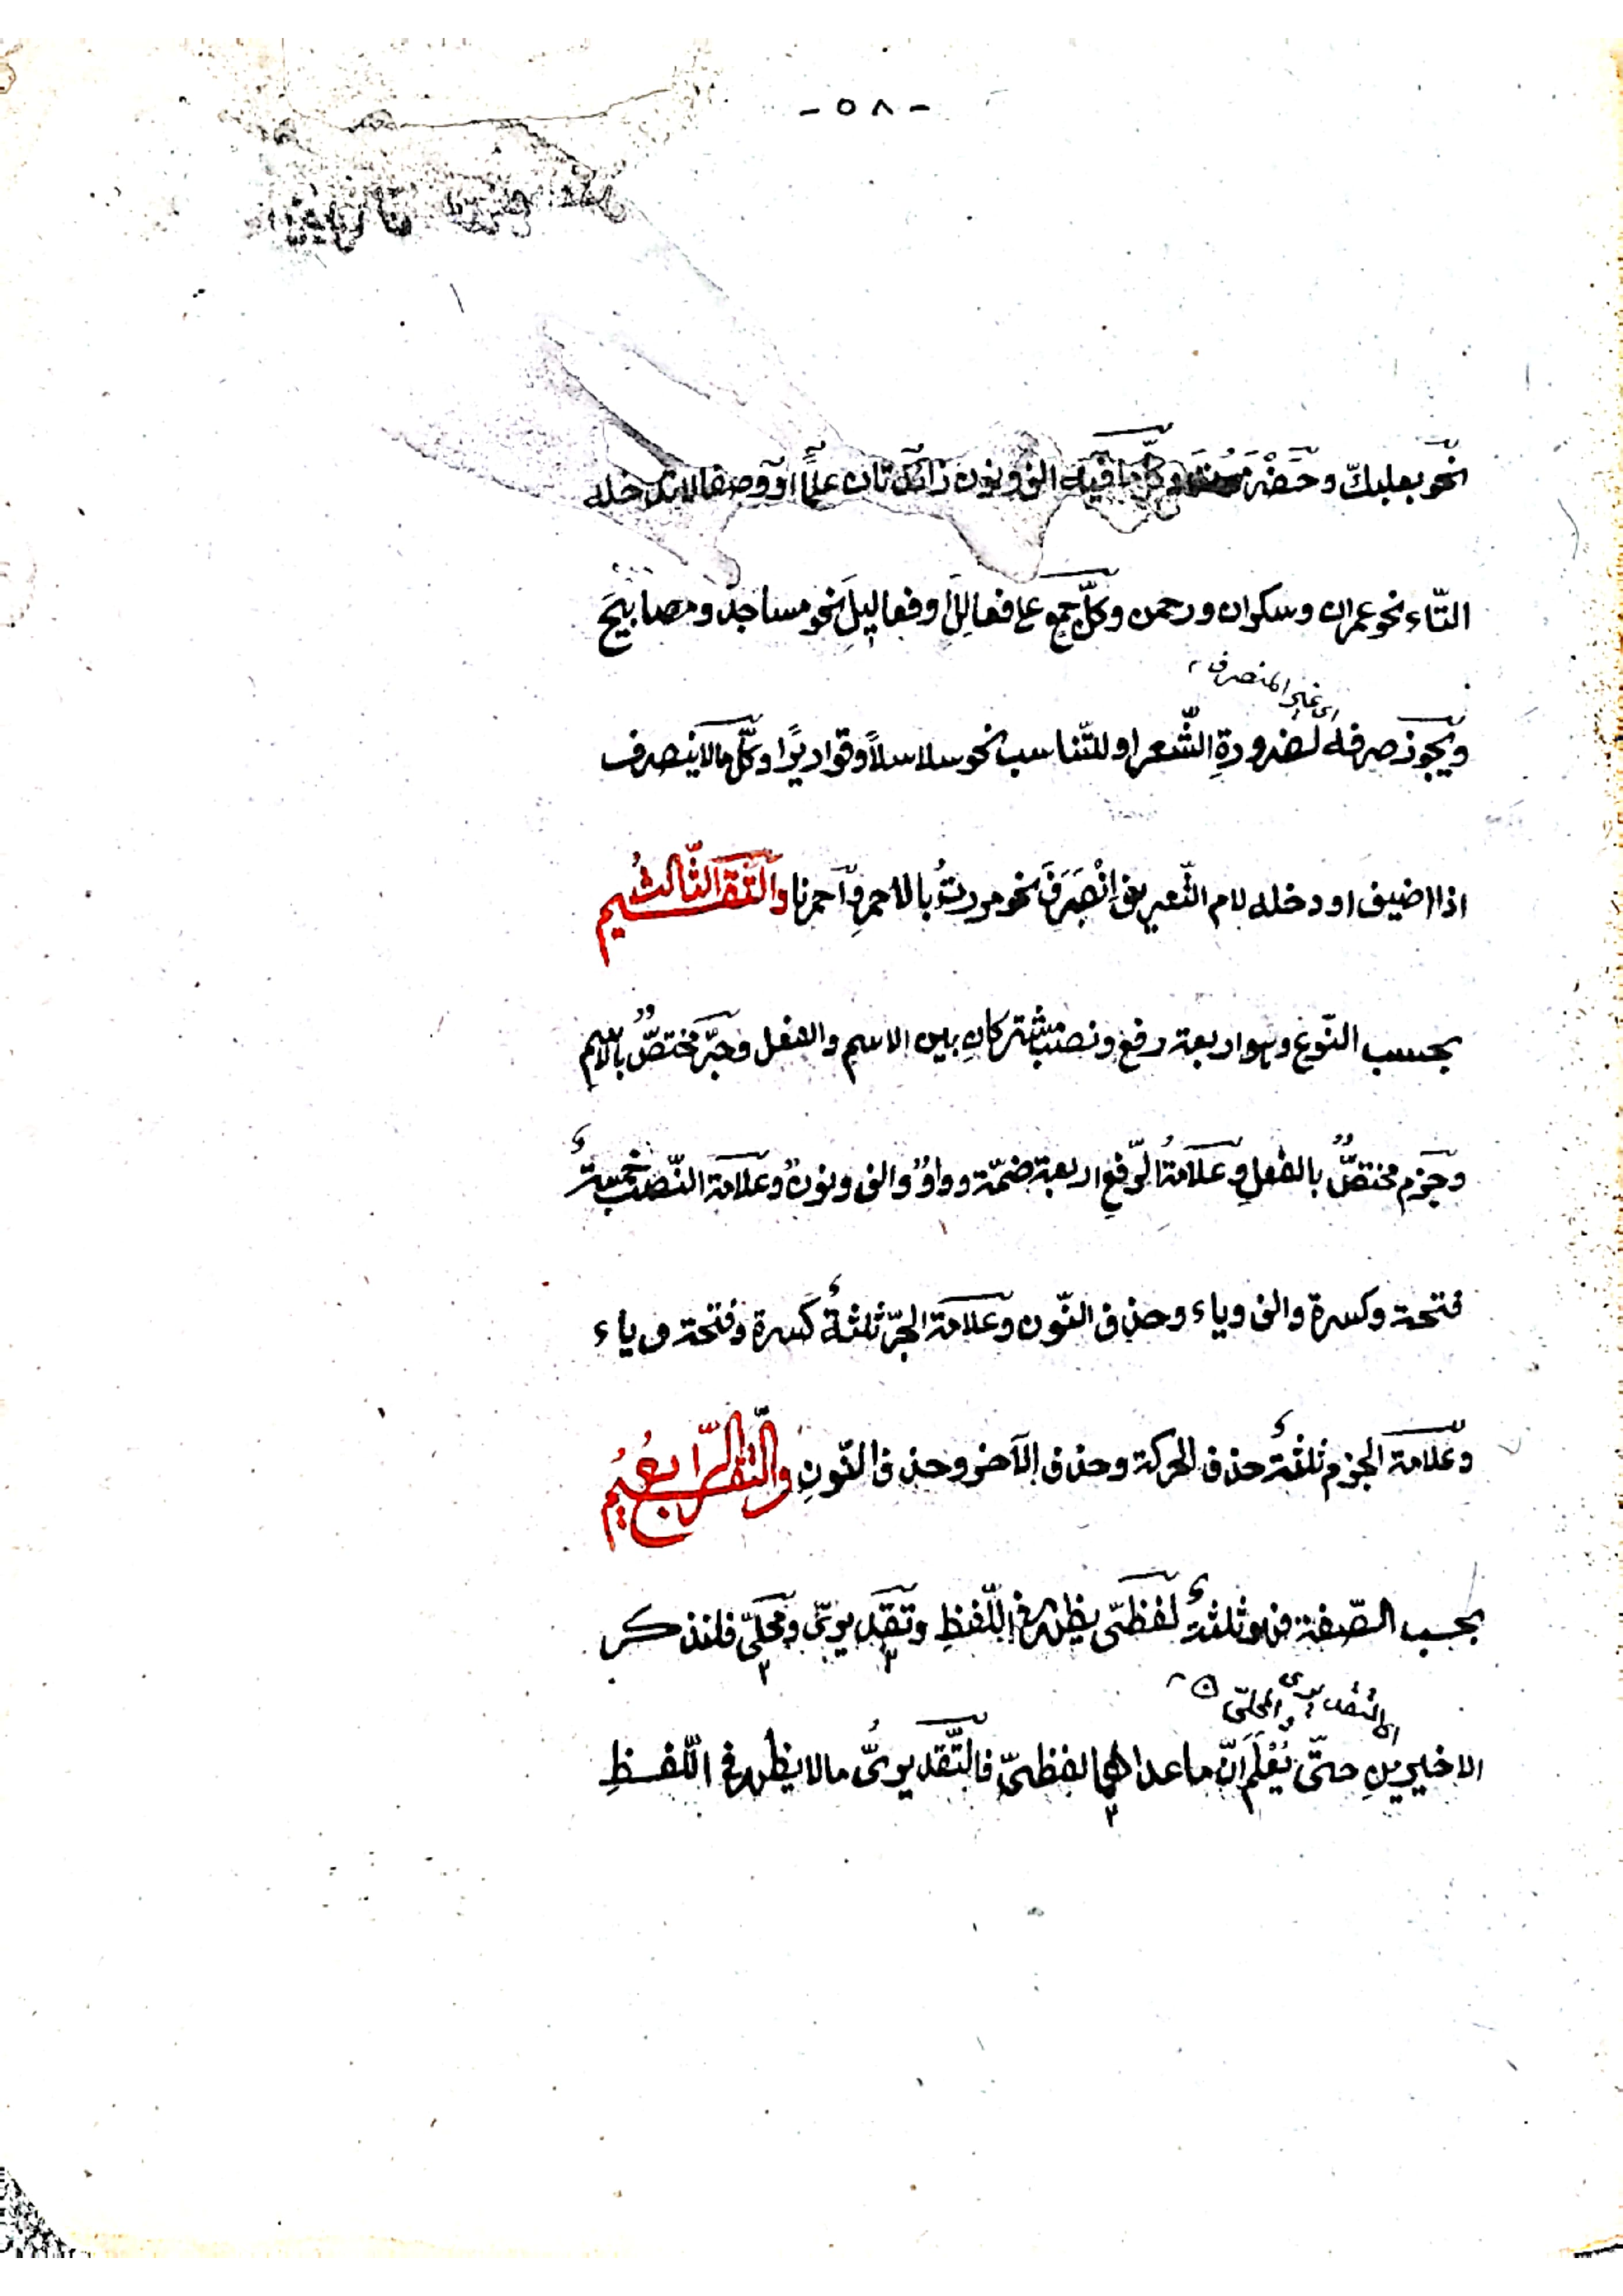 - ٥٨ -
نحو بعلبكّ وحَضْرَمَوْتَ وكلّ ما فيه الف ونون زائدتان علمًا او وصفا لا يدخله
التّاء نحو عمران وسكران ورحمن وكلّ جمع على فعالِلَ او فعاليلَ نحو مساجدَ ومصابيحَ
اى غير المنصرف
ويجوز صرفه لضرورةِ الشّعر او للتّناسب نحو سلاسلاً وقواريرًا وكلّ ما لا ينصرف
اذا اضيف او دخله لام التّعريف اِنْصَرَفَ نحو مررتُ بالاحمرِ واحمرنا والتّقسيم الثّالثُ
بحسب النّوع وهو اربعة رفع ونصب مشتركانِ بين الاسم والفعل وجرّ مختصٌّ بالاسمِ
وجزم مختصٌّ بالفعلِ وعلامةُ الرّفعِ اربعة ضمّة وواوٌ والف ونونٌ وعلامة النّصب خمسةٌ
فتحة وكسرة والف وياء وحذف النّون وعلامة الجرّ ثلثةٌ كسرة وفتحة وياء
وعلامة الجزم ثلثةٌ حذف الحركة وحذف الآخر وحذف النّونِ والتّقسيمُ الرّابعُ
بحسب الصّفة فهو ثلثةٌ لفظىّ يظهر فى اللّفظِ وتقديرىّ ومحلّىّ فلنذكر
اى التقديرى والمحلّى
الاخيرينِ حتّى يُعْلَمَ اَنّ ما عداهما لفظىّ فالتّقديرىُّ ما لا يظهر فى اللّفظِ